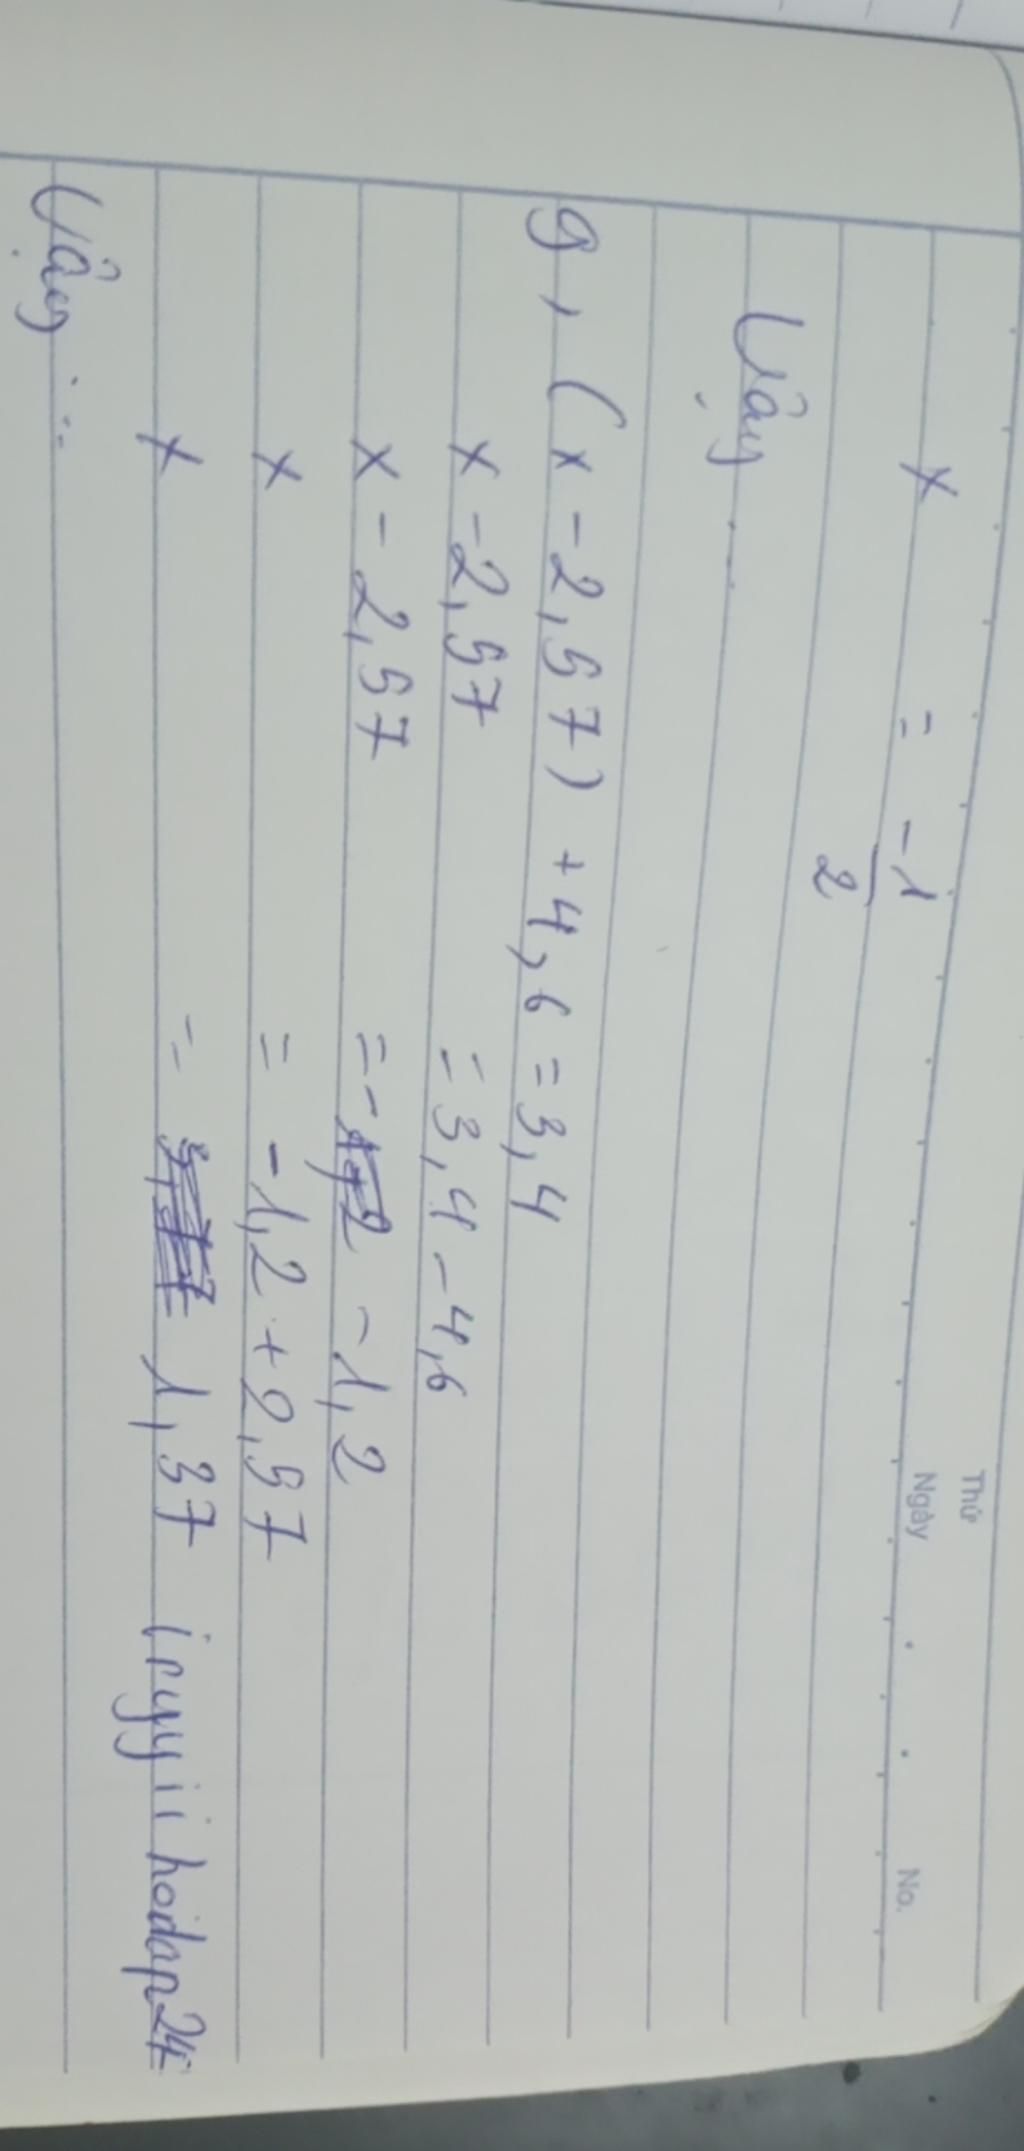 Thứ
Ngày No.
x = -1/2
Vậy ...
g, (x - 2,57) + 4,6 = 3,4
x - 2,57 = 3,4 - 4,6
x - 2,57 = - 1,2
x = -1,2 + 2,57
x = 1,37 iruyii hoidap247
Vậy ...